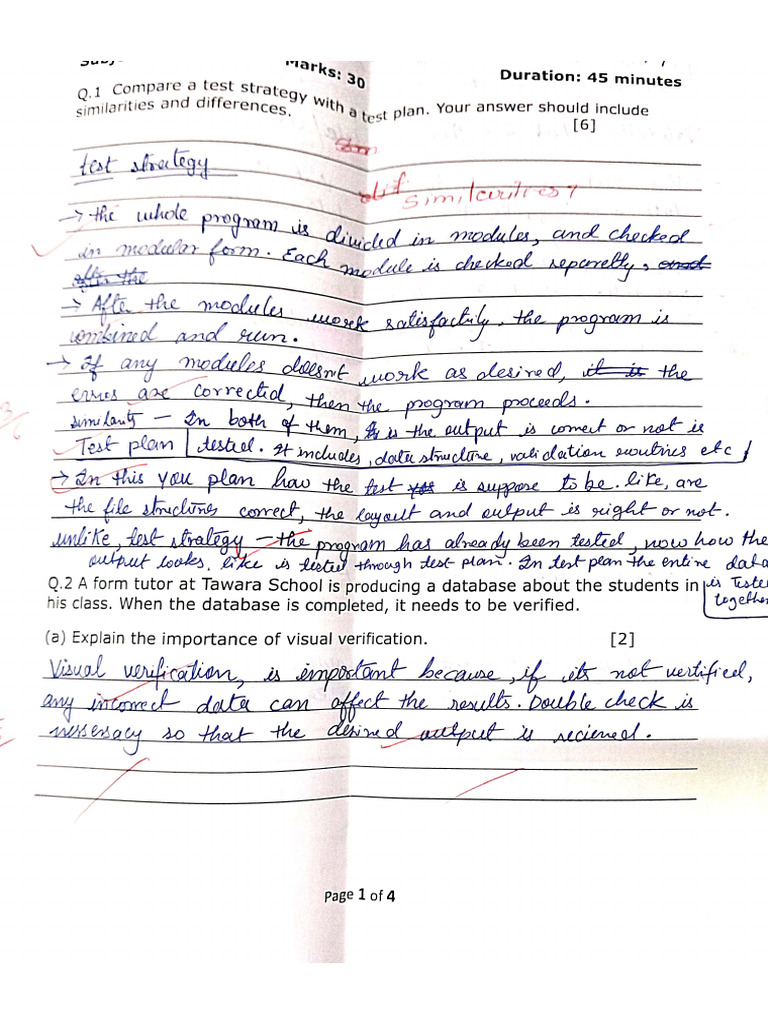 Marks: 30
Duration: 45 minutes
Q.1 Compare a test strategy with a test plan. Your answer should include
similarities and differences.
[6]
test strategy
similarities?
→ the whole program is divided in modules, and checked
in modular form. Each module is checked seperatly.
after the
→ After the modules work satisfactily, the program is
combined and run.
→ If any modules doesnt work as desired, it is the
erros are corrected, then the program proceeds.
similarity - In both of them, is the output is correct or not is
Test plan tested. It includes, data structure, validation routines etc
→ In this you plan how the test is suppose to be. like, are
the file structures correct, the layout and output is right or not.
unlike, test strategy - the program has already been tested, now how the
output looks, like is tested through test plan. In test plan the entire data
is Tested
together
Q.2 A form tutor at Tawara School is producing a database about the students in
his class. When the database is completed, it needs to be verified.
(a) Explain the importance of visual verification.
[2]
Visual verification, is important because, if its not vertified,
any incorrect data can affect the results. Double check is
nessesacy so that the desired output is reciened.
Page 1 of 4